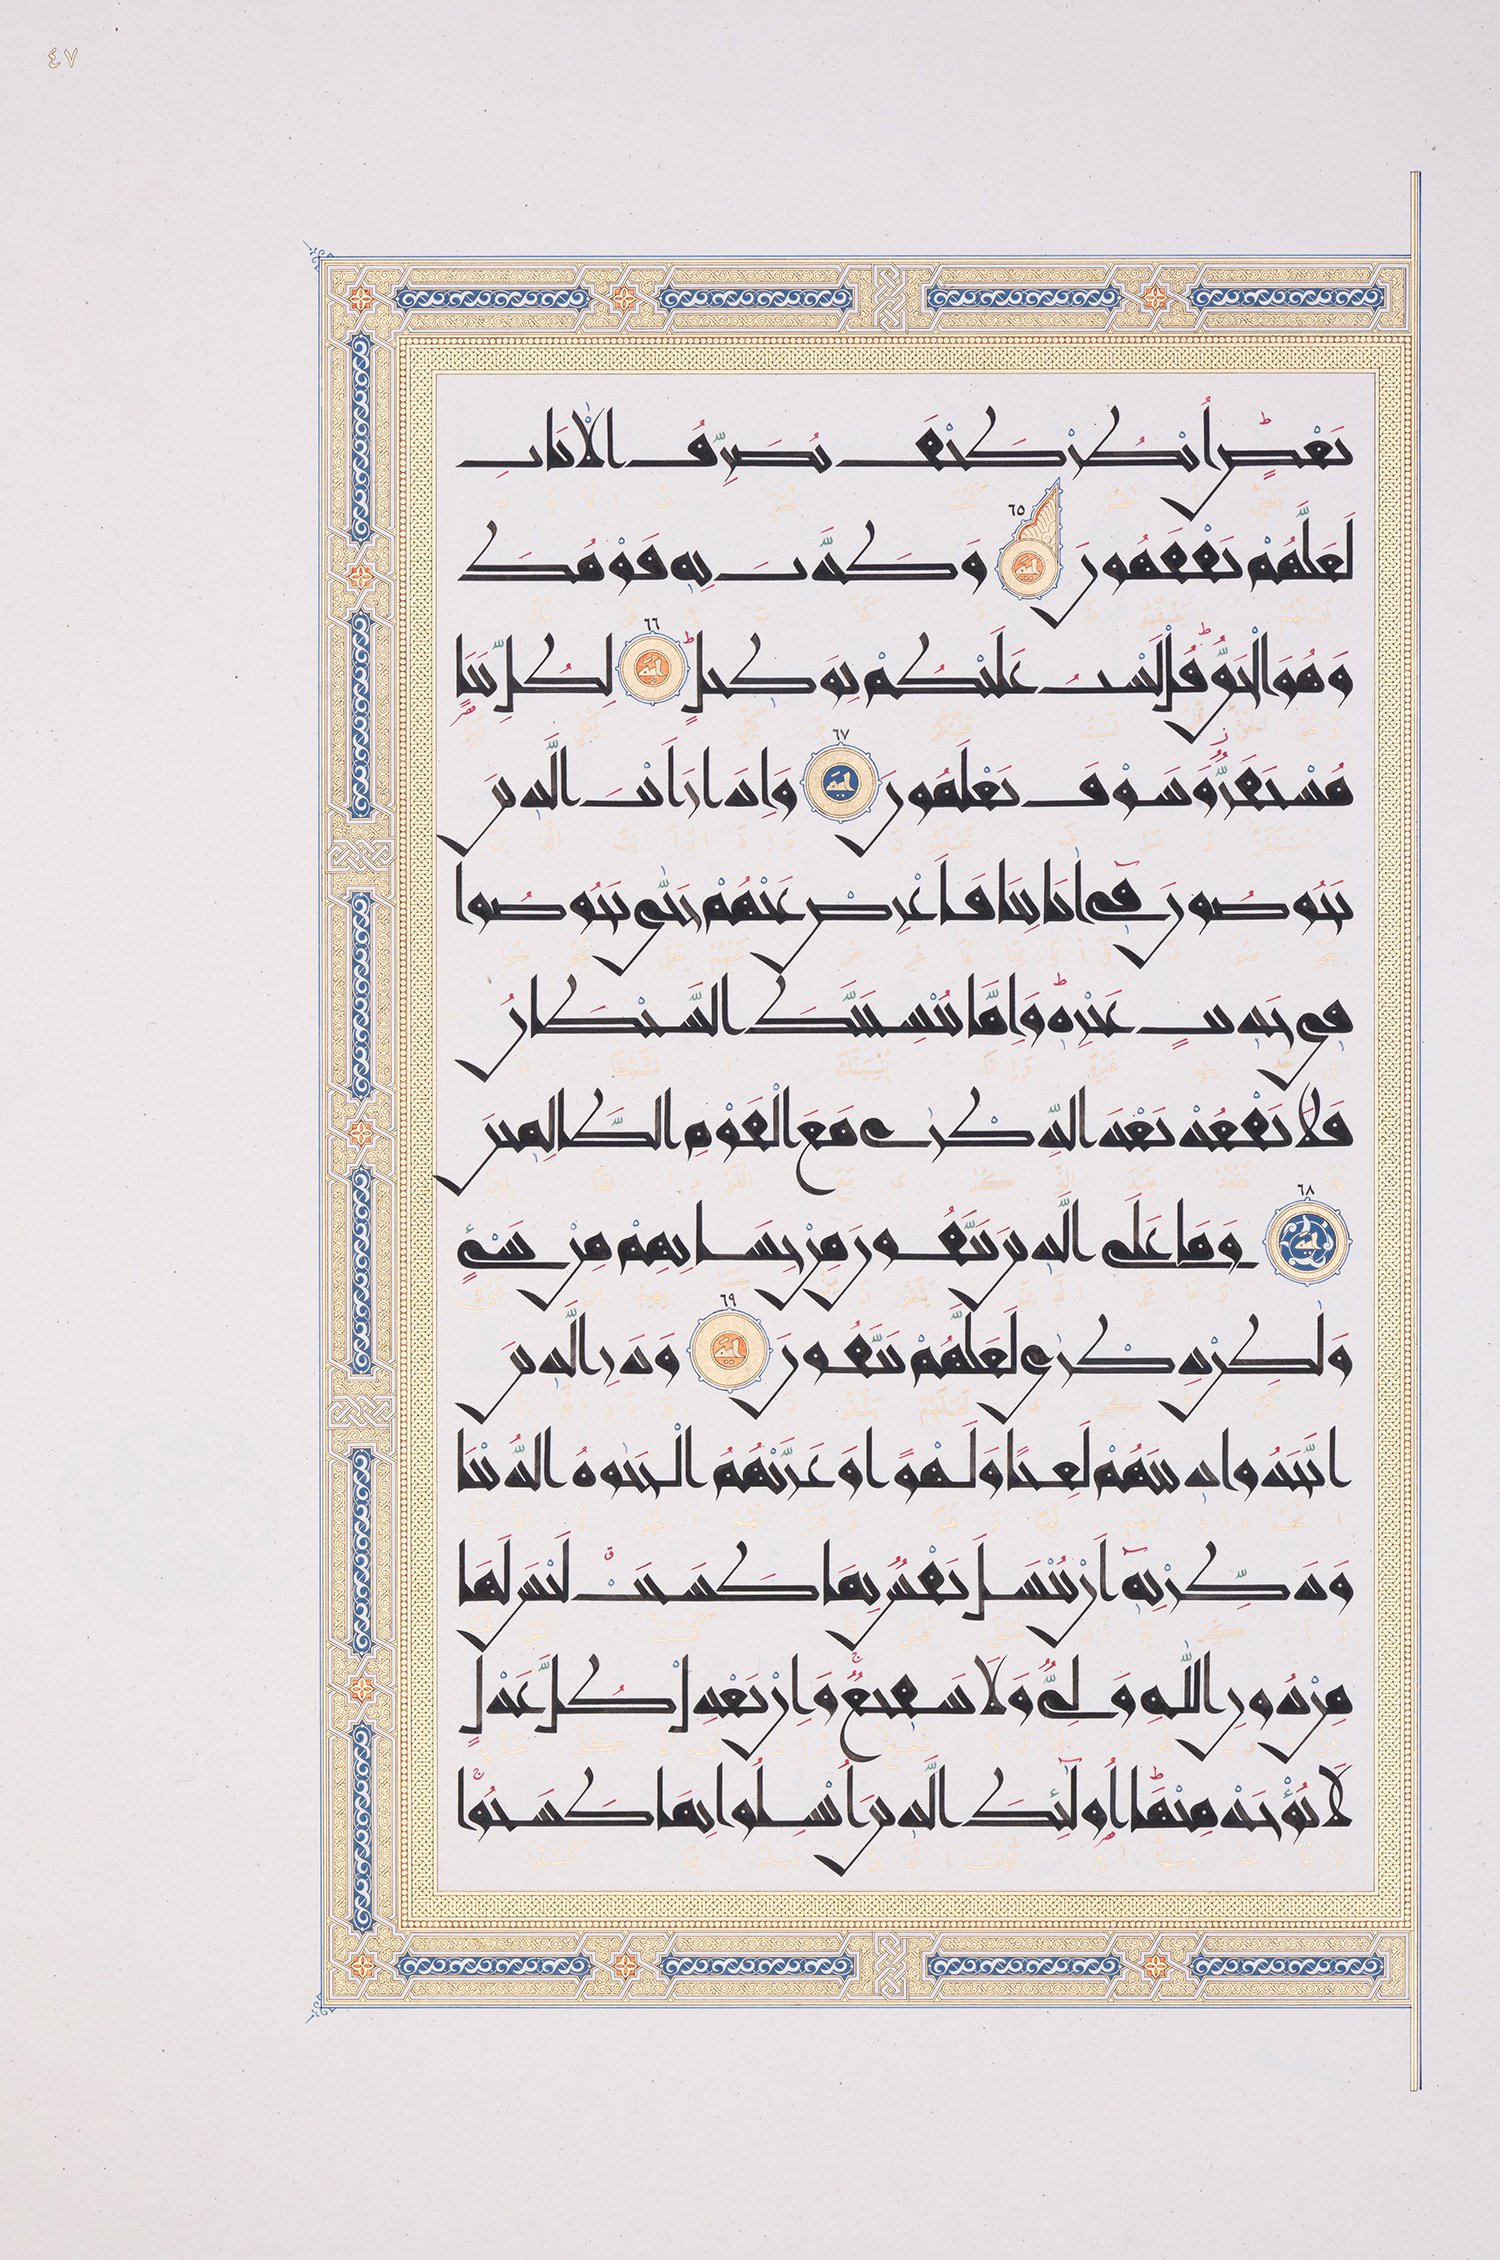 ٤٧
بَعْضٍ ۗ اُنْظُرْ كَيْفَ نُصَرِّفُ الْاٰيَاتِ
لَعَلَّهُمْ يَفْقَهُونَ ٦٥ اية وَكَذَّبَ بِهٖ قَوْمُكَ
وَهُوَ الْحَقُّ ۗ قُلْ لَسْتُ عَلَيْكُمْ بِوَكٖيلٍ ۗ ٦٦ اية لِكُلِّ نَبَاٍ
مُسْتَقَرٌّ وَسَوْفَ تَعْلَمُونَ ٦٧ اية وَاِذَا رَاَيْتَ الَّذٖينَ
يَخُوضُونَ فٖٓي اٰيَاتِنَا فَاَعْرِضْ عَنْهُمْ حَتّٰى يَخُوضُوا
فٖي حَدٖيثٍ غَيْرِهٖ ۗ وَاِمَّا يُنْسِيَنَّكَ الشَّيْطَانُ
فَلَا تَقْعُدْ بَعْدَ الذِّكْرٰى مَعَ الْقَوْمِ الظَّالِمٖينَ
٦٨ اية وَمَا عَلَى الَّذٖينَ يَتَّقُونَ مِنْ حِسَابِهِمْ مِنْ شَيْءٍ
وَلٰكِنْ ذِكْرٰى لَعَلَّهُمْ يَتَّقُونَ ٦٩ اية وَذَرِ الَّذٖينَ
اتَّخَذُوا دٖينَهُمْ لَعِبًا وَلَهْوًا وَغَرَّتْهُمُ الْحَيٰوةُ الدُّنْيَا
وَذَكِّرْ بِهٖٓ اَنْ تُبْسَلَ نَفْسٌ بِمَا كَسَبَتْ لَيْسَ لَهَا
مِنْ دُونِ اللّٰهِ وَلِيٌّ وَلَا شَفٖيعٌ ۚ وَاِنْ تَعْدِلْ كُلَّ عَدْلٍ
لَا يُؤْخَذْ مِنْهَا ۗ اُولٰٓئِكَ الَّذٖينَ اُبْسِلُوا بِمَا كَسَبُوا ۚ